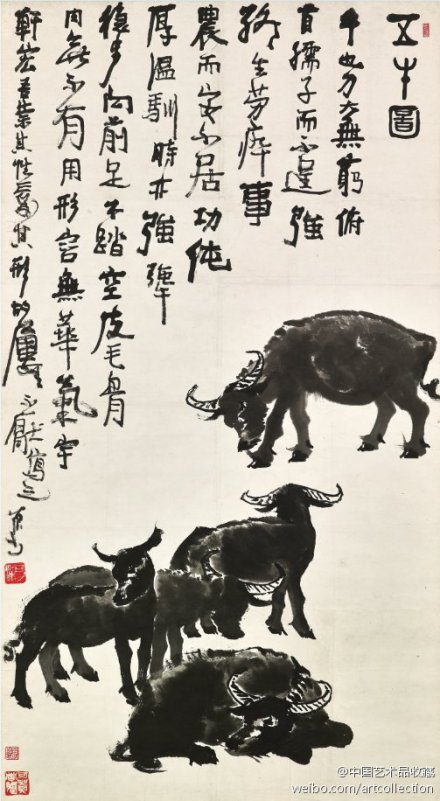 五牛圖
牛也力大無窮俯
首孺子而不逞強
終生勞瘁事
農而安不居功純
厚溫馴時亦強犟
穩步向前足不踏空皮毛骨
肉無不有用形容無華氣宇
軒宏吾崇其性愛其形故屢屢不厭寫之 可染
@中国艺术品收藏
weibo.com/artcollection